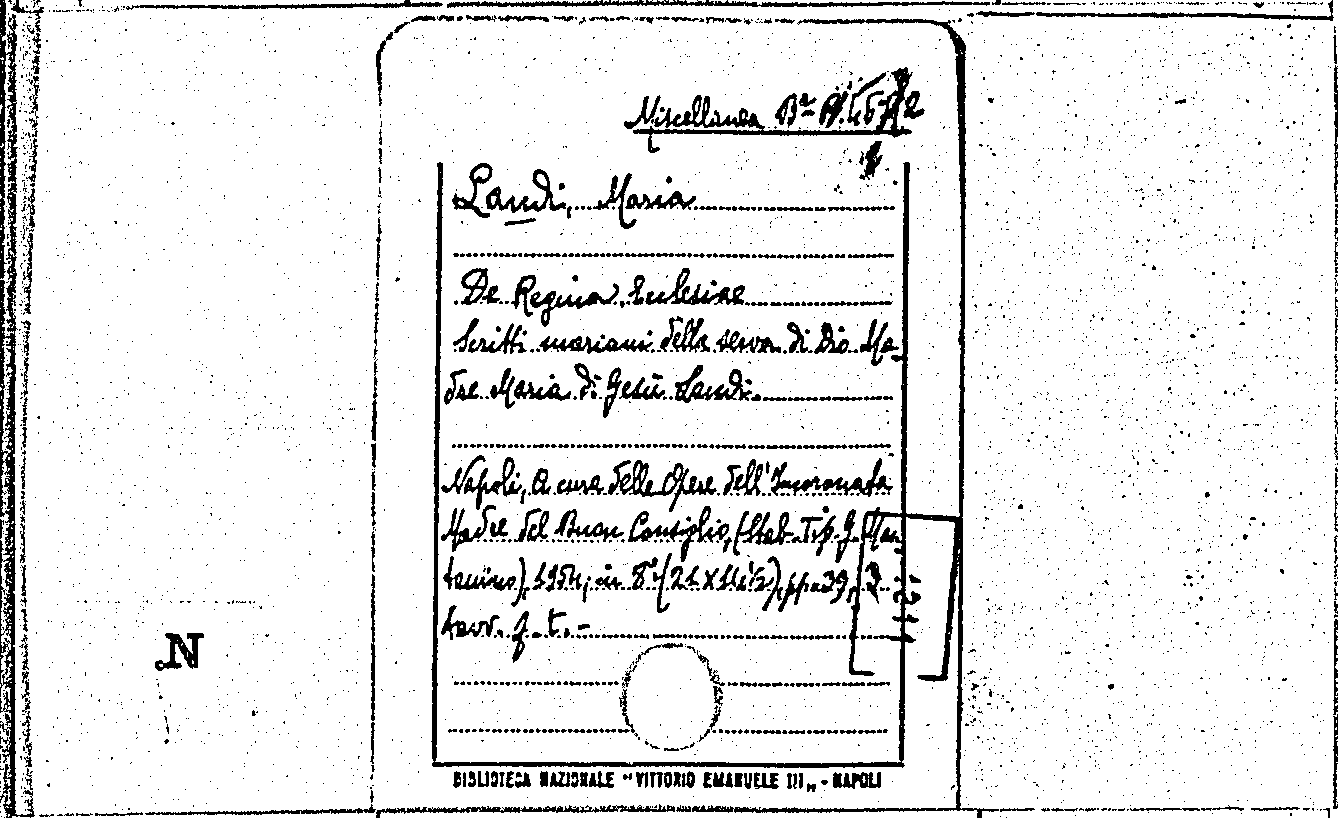 Miscellanea Bª
Landi, Maria
De Regina Ecclesiae
Scritti mariani della serva di Dio Ma-
dre Maria di Gesù Landi.
Napoli, A cura delle Opere dell'Incoronata
Madre del Buon Consiglio, (Stab. Tip. G. Men-
tanino), 1954, in 8° (21 X 14 ½), pp. 39,
tavv. f. t. -
N
BIBLIOTECA NAZIONALE "VITTORIO EMANUELE III„ - NAPOLI